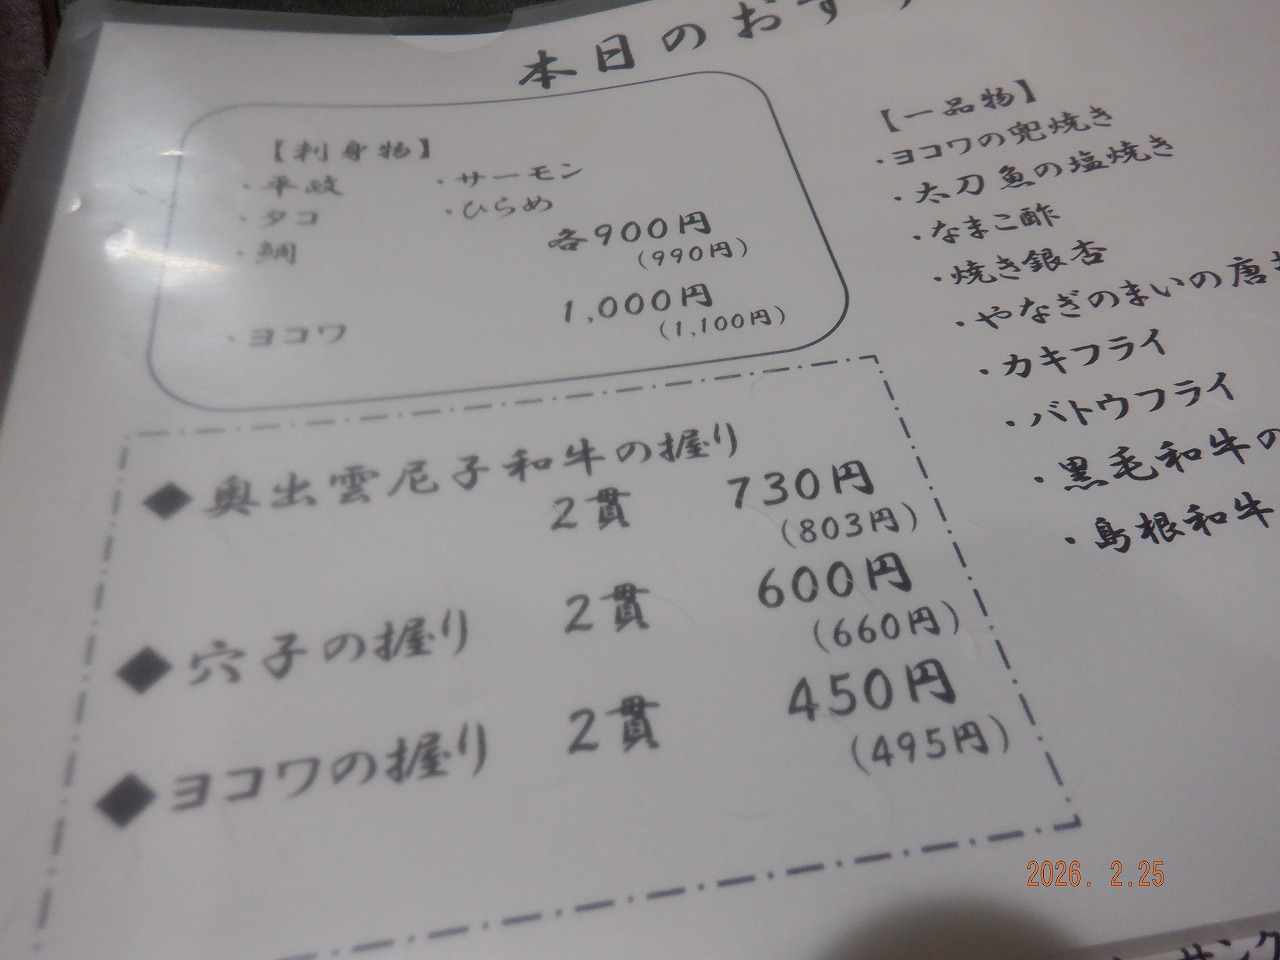 本日のおす
【刺身物】
・平政 ・サーモン
・タコ ・ひらめ
・鯛 各900円
(990円)
・ヨコワ 1,000円
(1,100円)
◆奥出雲尼子和牛の握り
2貫 730円
(803円)
◆穴子の握り 2貫 600円
(660円)
◆ヨコワの握り 2貫 450円
(495円)
【一品物】
・ヨコワの兜焼き
・太刀魚の塩焼き
・なまこ酢
・焼き銀杏
・やなぎのまいの唐
・カキフライ
・バトウフライ
・黒毛和牛の
・島根和牛
サンク
2026. 2.25